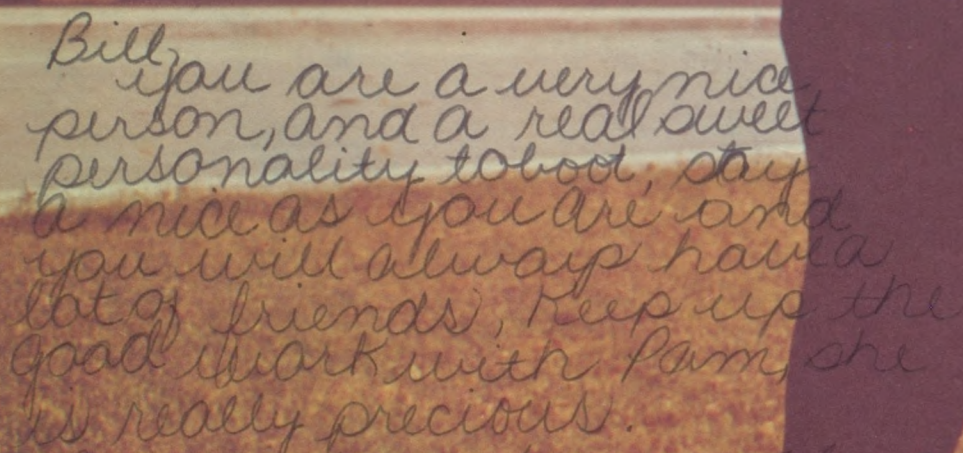 Bill,
you are a very nice
person, and a real sweet
personality toboot, stay
a nice as you are and
you will always have a
lot of friends, Keep up the
good work with Pam, she
is really precious.